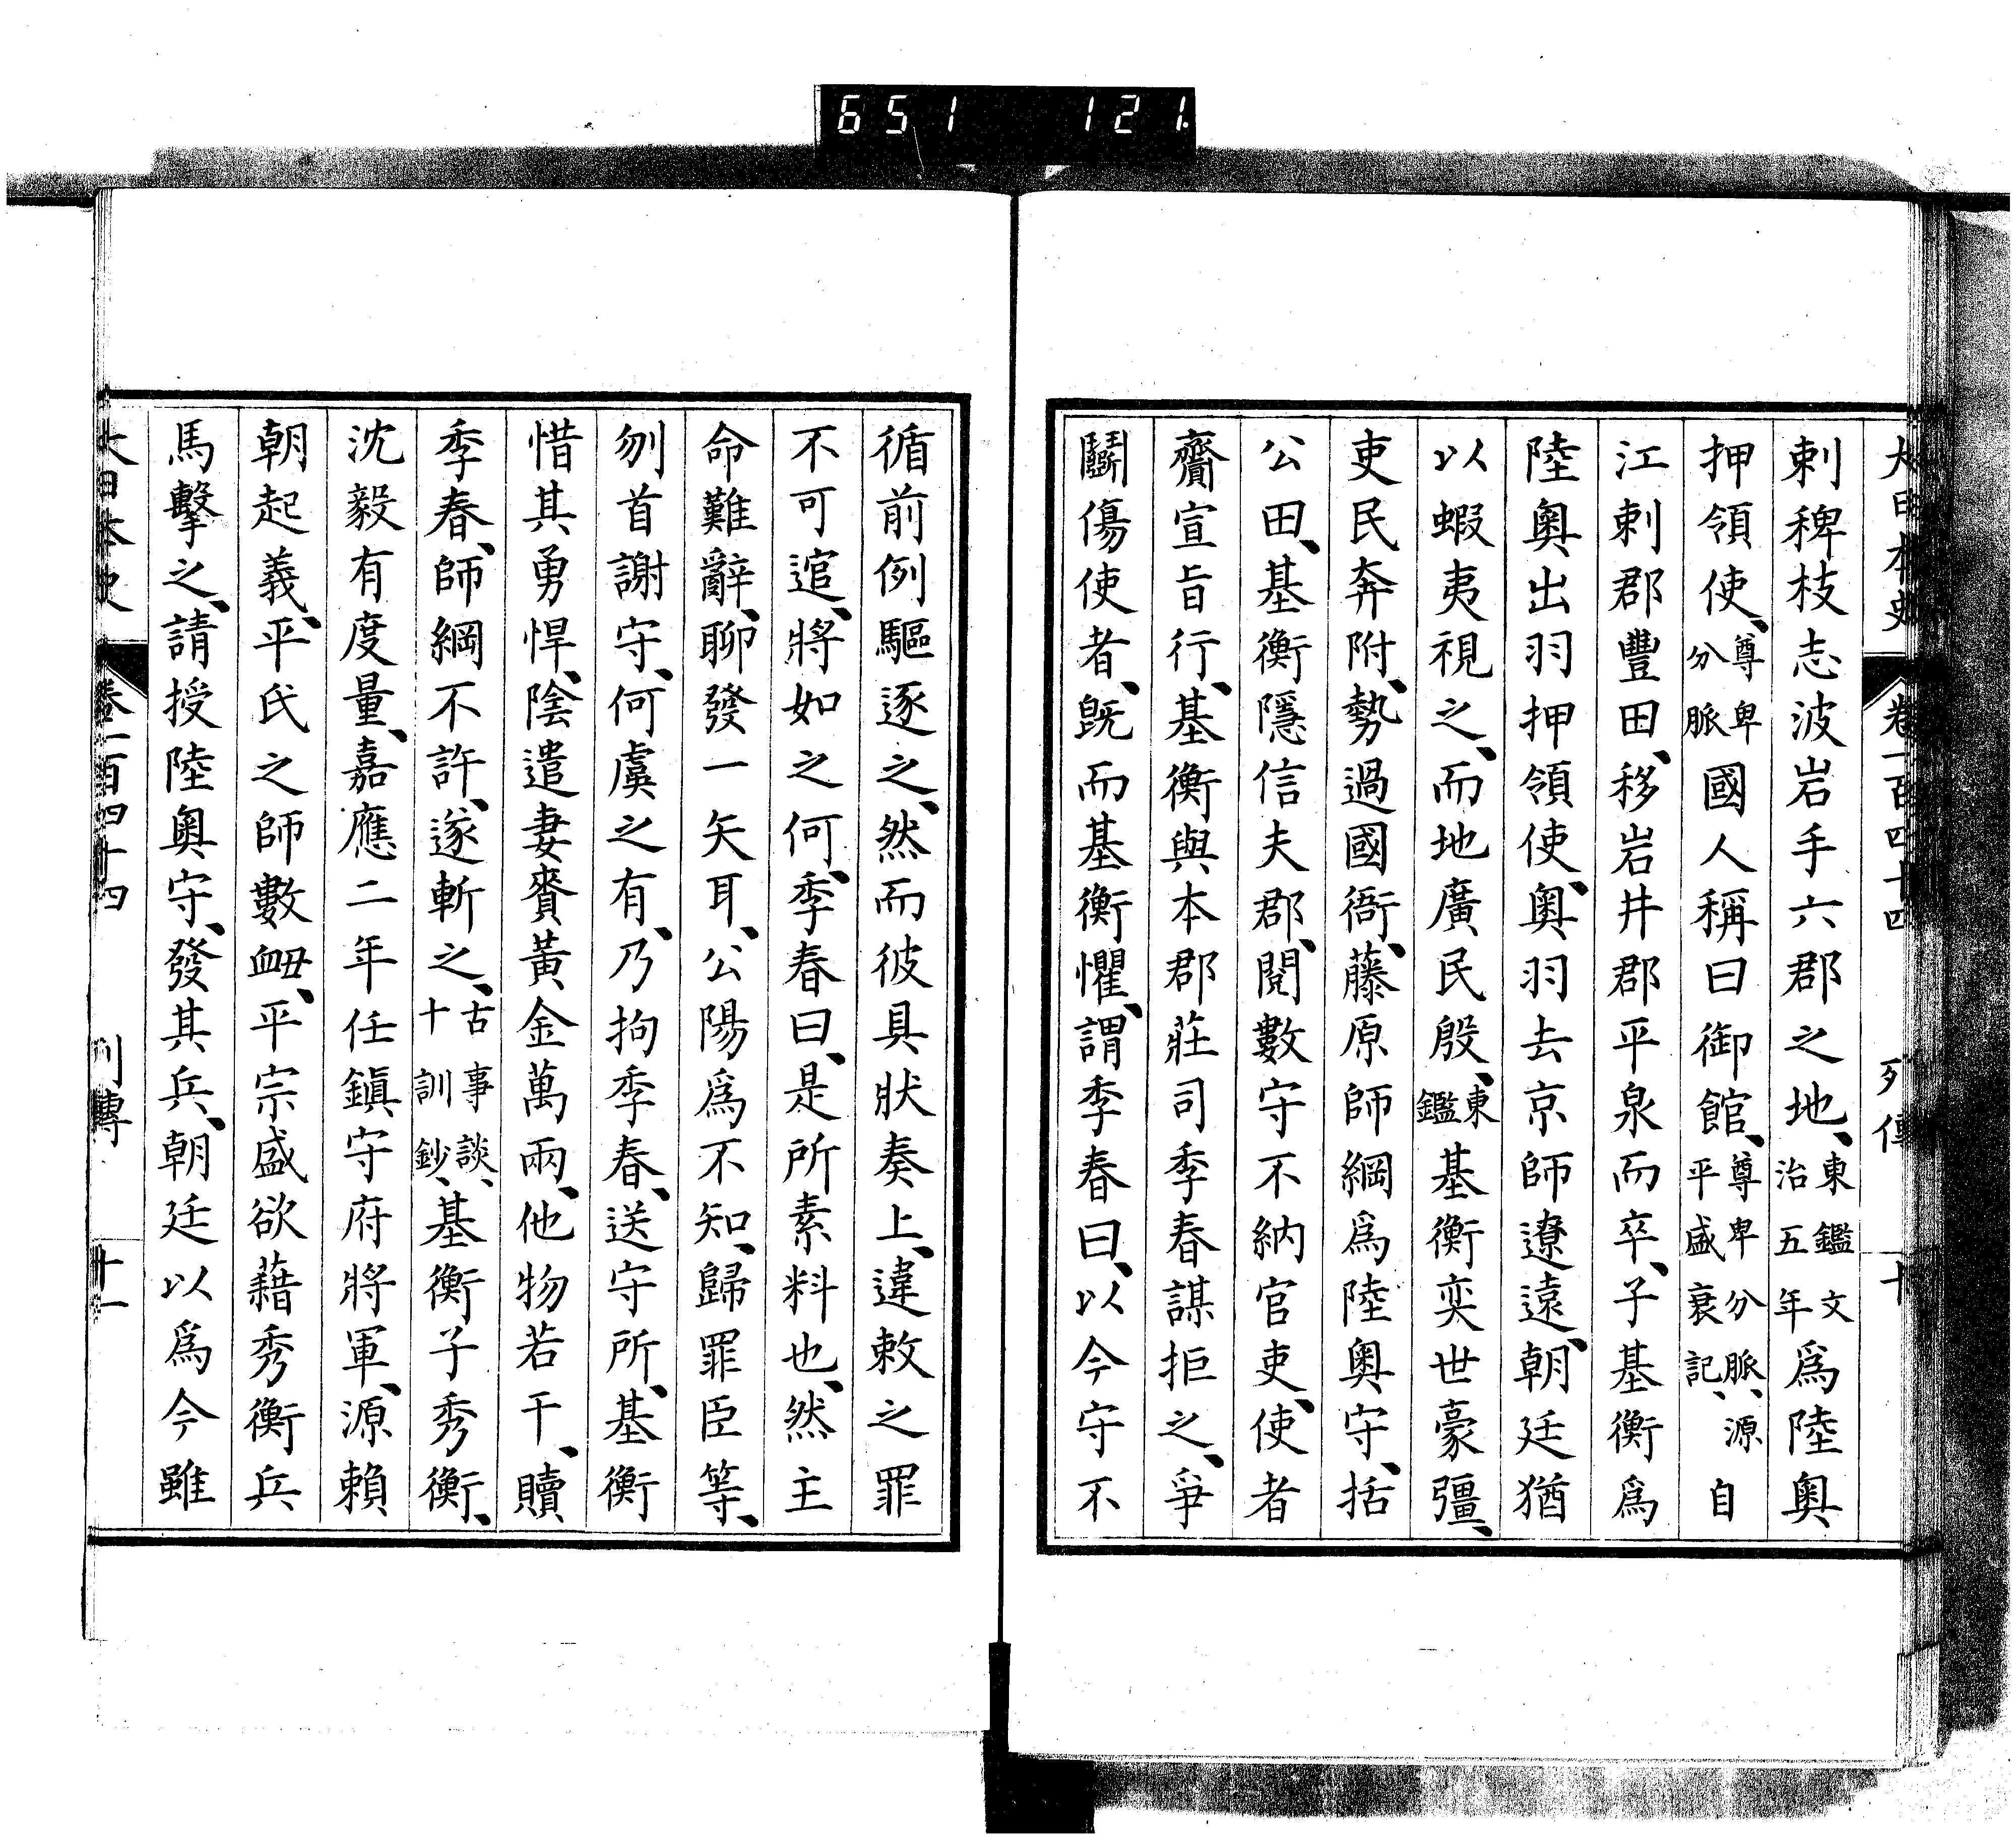 651 121
大日本史 卷一百四十四 列傳 十
剌稗枝志波岩手六郡之地、東鑑文治五年爲陸奧
押領使、尊卑分脈國人稱曰御館、尊卑分脈、源平盛衰記、自
江剌郡豐田、移岩井郡平泉而卒、子基衡爲
陸奧出羽押領使、奧羽去京師遼遠、朝廷猶
以蝦夷視之、而地廣民殷、東鑑基衡奕世豪彊、
吏民奔附、勢過國衙、藤原師綱爲陸奧守、括
公田、基衡隱信夫郡、閱數守不納官吏、使者
齎宣旨行、基衡與本郡莊司季春謀拒之、爭
鬭傷使者、旣而基衡懼、謂季春曰、以今守不
循前例驅逐之、然而彼具狀奏上、違敕之罪
不可逭、將如之何、季春曰、是所素料也、然主
命難辭、聊發一矢耳、公陽爲不知、歸罪臣等、
刎首謝守、何虞之有、乃拘季春、送守所、基衡
惜其勇悍、陰遣妻賫黃金萬兩、他物若干、贖
季春、師綱不許、遂斬之、古事談、十訓鈔、基衡子秀衡、
沈毅有度量、嘉應二年任鎭守府將軍、源賴
朝起義、平氏之師數衄、平宗盛欲藉秀衡兵
馬擊之、請授陸奧守、發其兵、朝廷以爲今雖
大日本史 卷一百四十四 列傳 十一